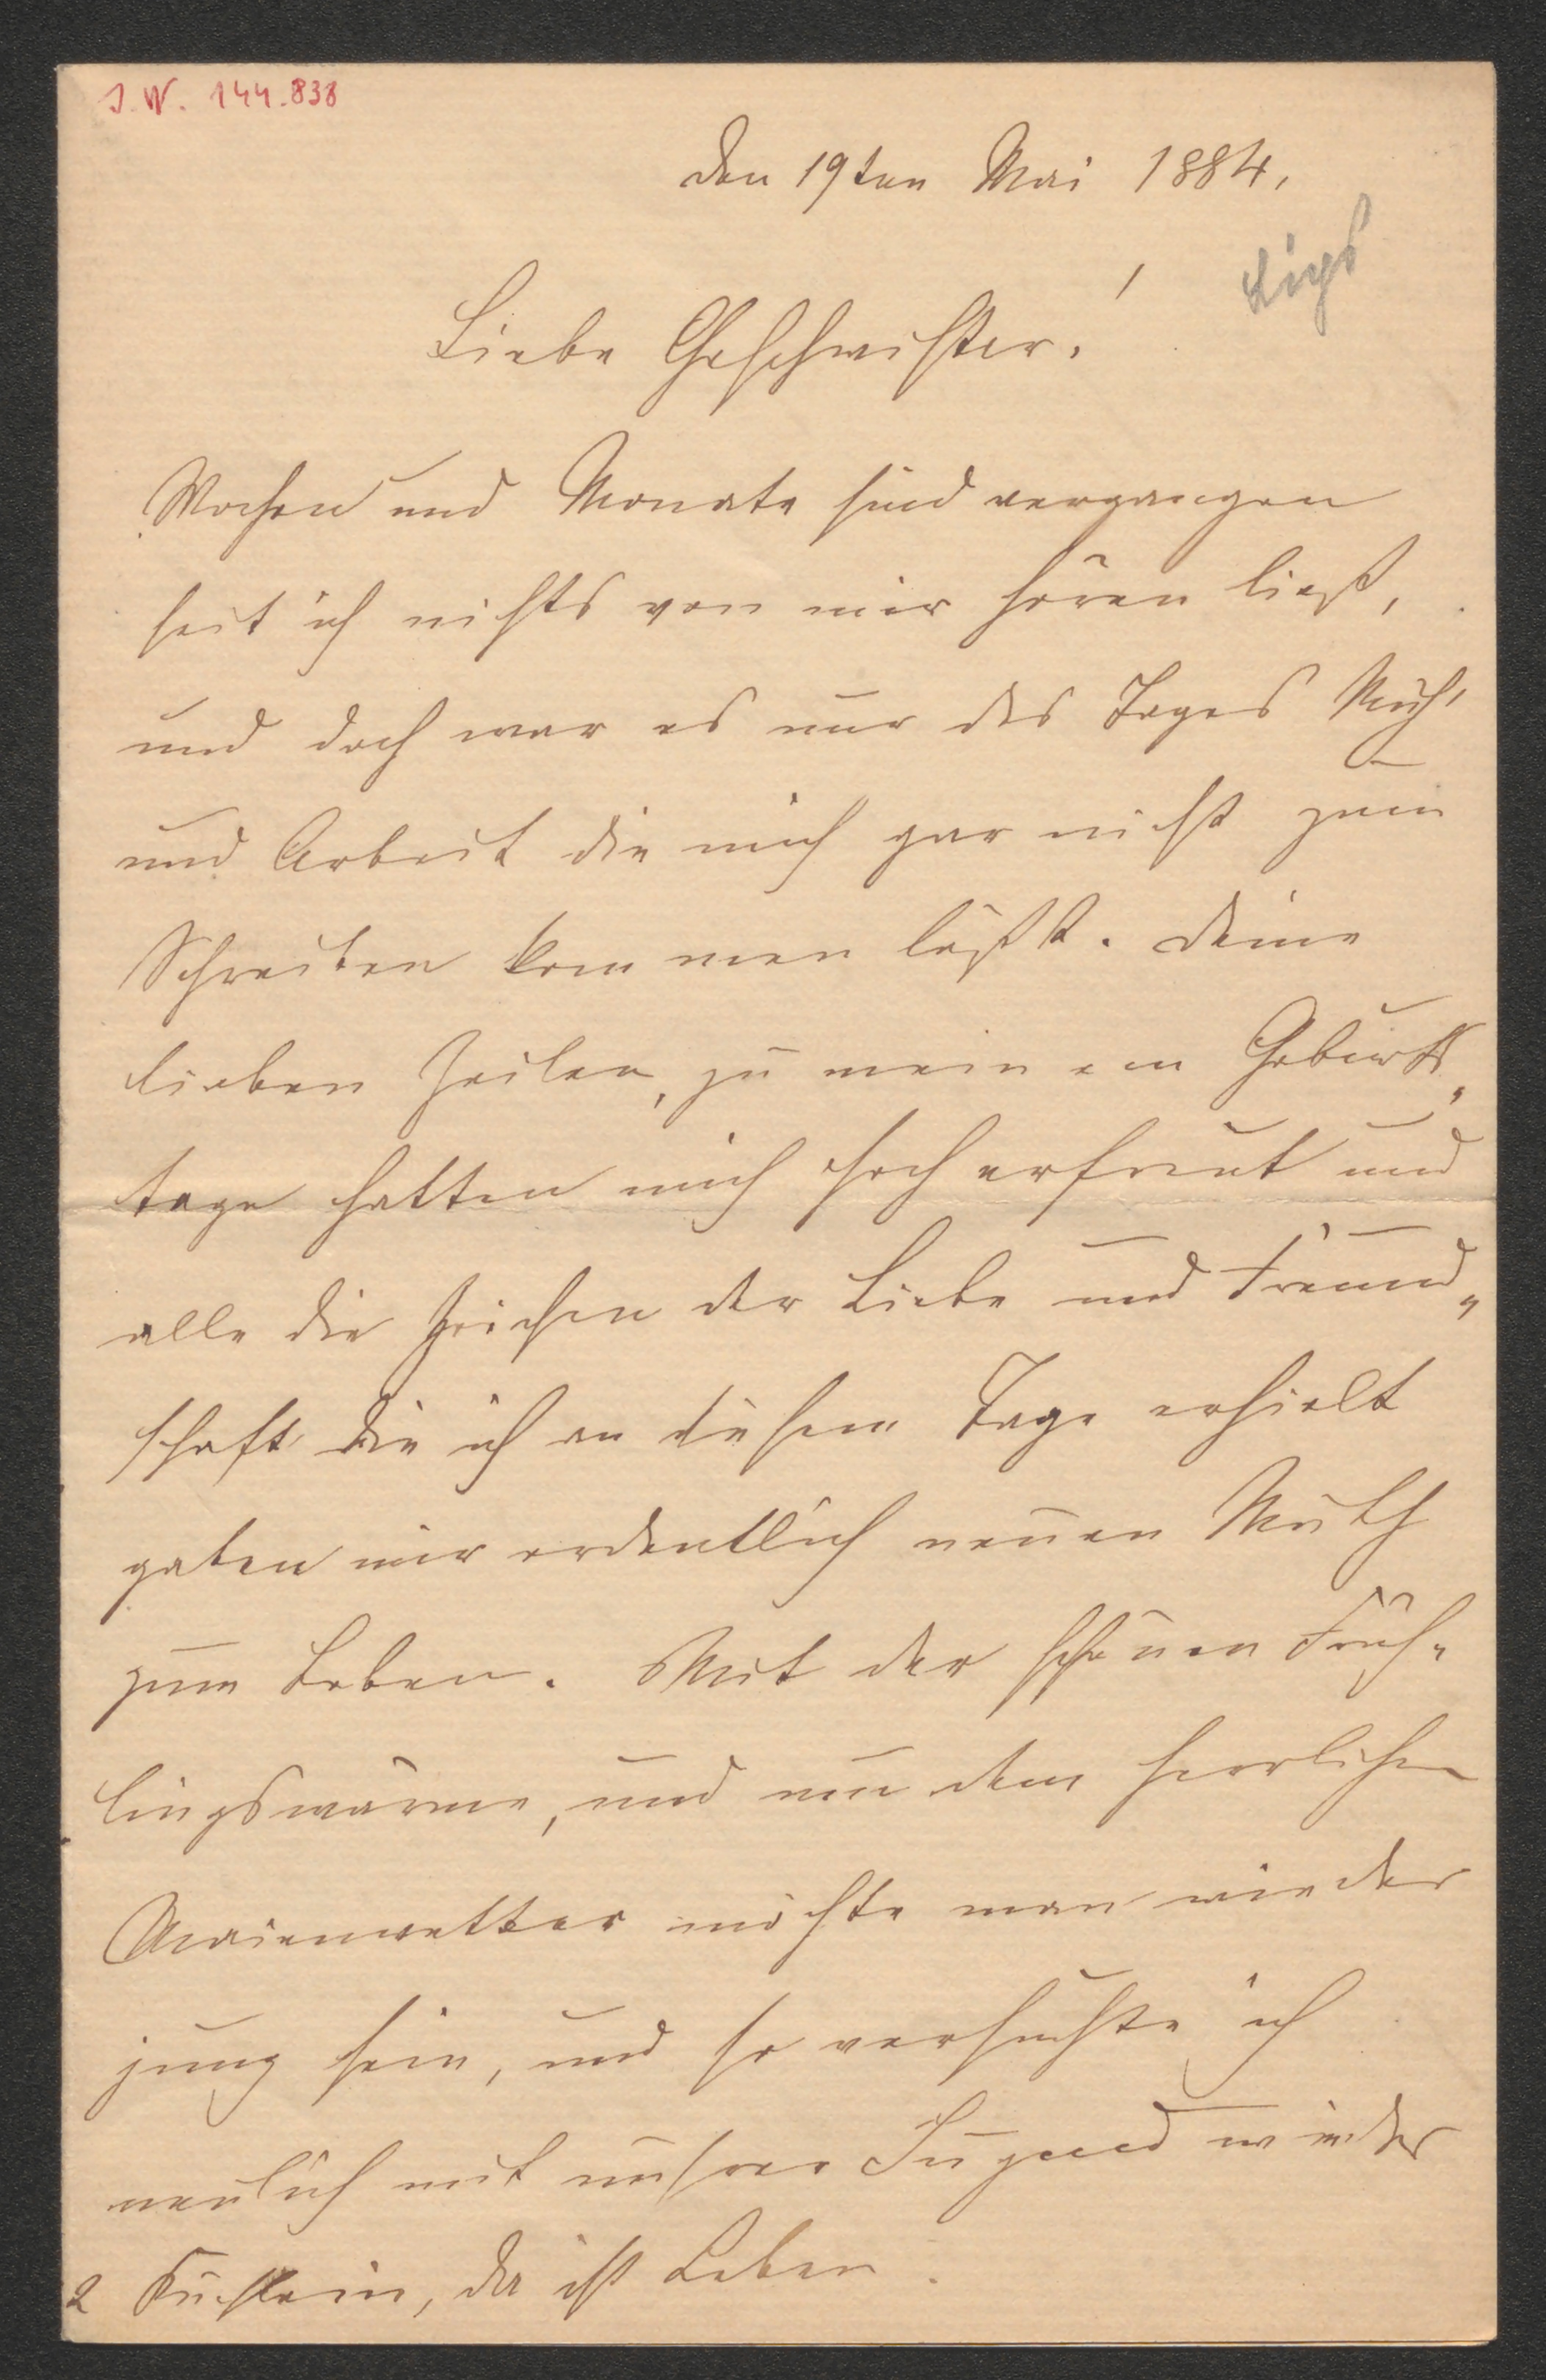 J. N. 144.838
den 19ten Mai 1884.
Liebe Geschwister!
Wochen und Monate sind vergangen
seit ich nichts von mir hören ließ,
und doch war es nur des Tages Müh'
und Arbeit die mich gar nicht zum
Schreiben kommen läßt. Deine
lieben Zeilen, zu meinem Geburts„
tage hatten mich hoch erfreut und
alle die Zeichen der Liebe und Freund„
schaft die ich an diesem Tage erhielt
gaben mir ordentlich neuen Muth
zum Leben. Mit der schönen Früh„
lingswärme, und nun dem herrlichen
Maienwetter möchte man wieder
jung sein, und so versuchte ich
neulich mit unsrer Jugend wieder
da ist Leben.